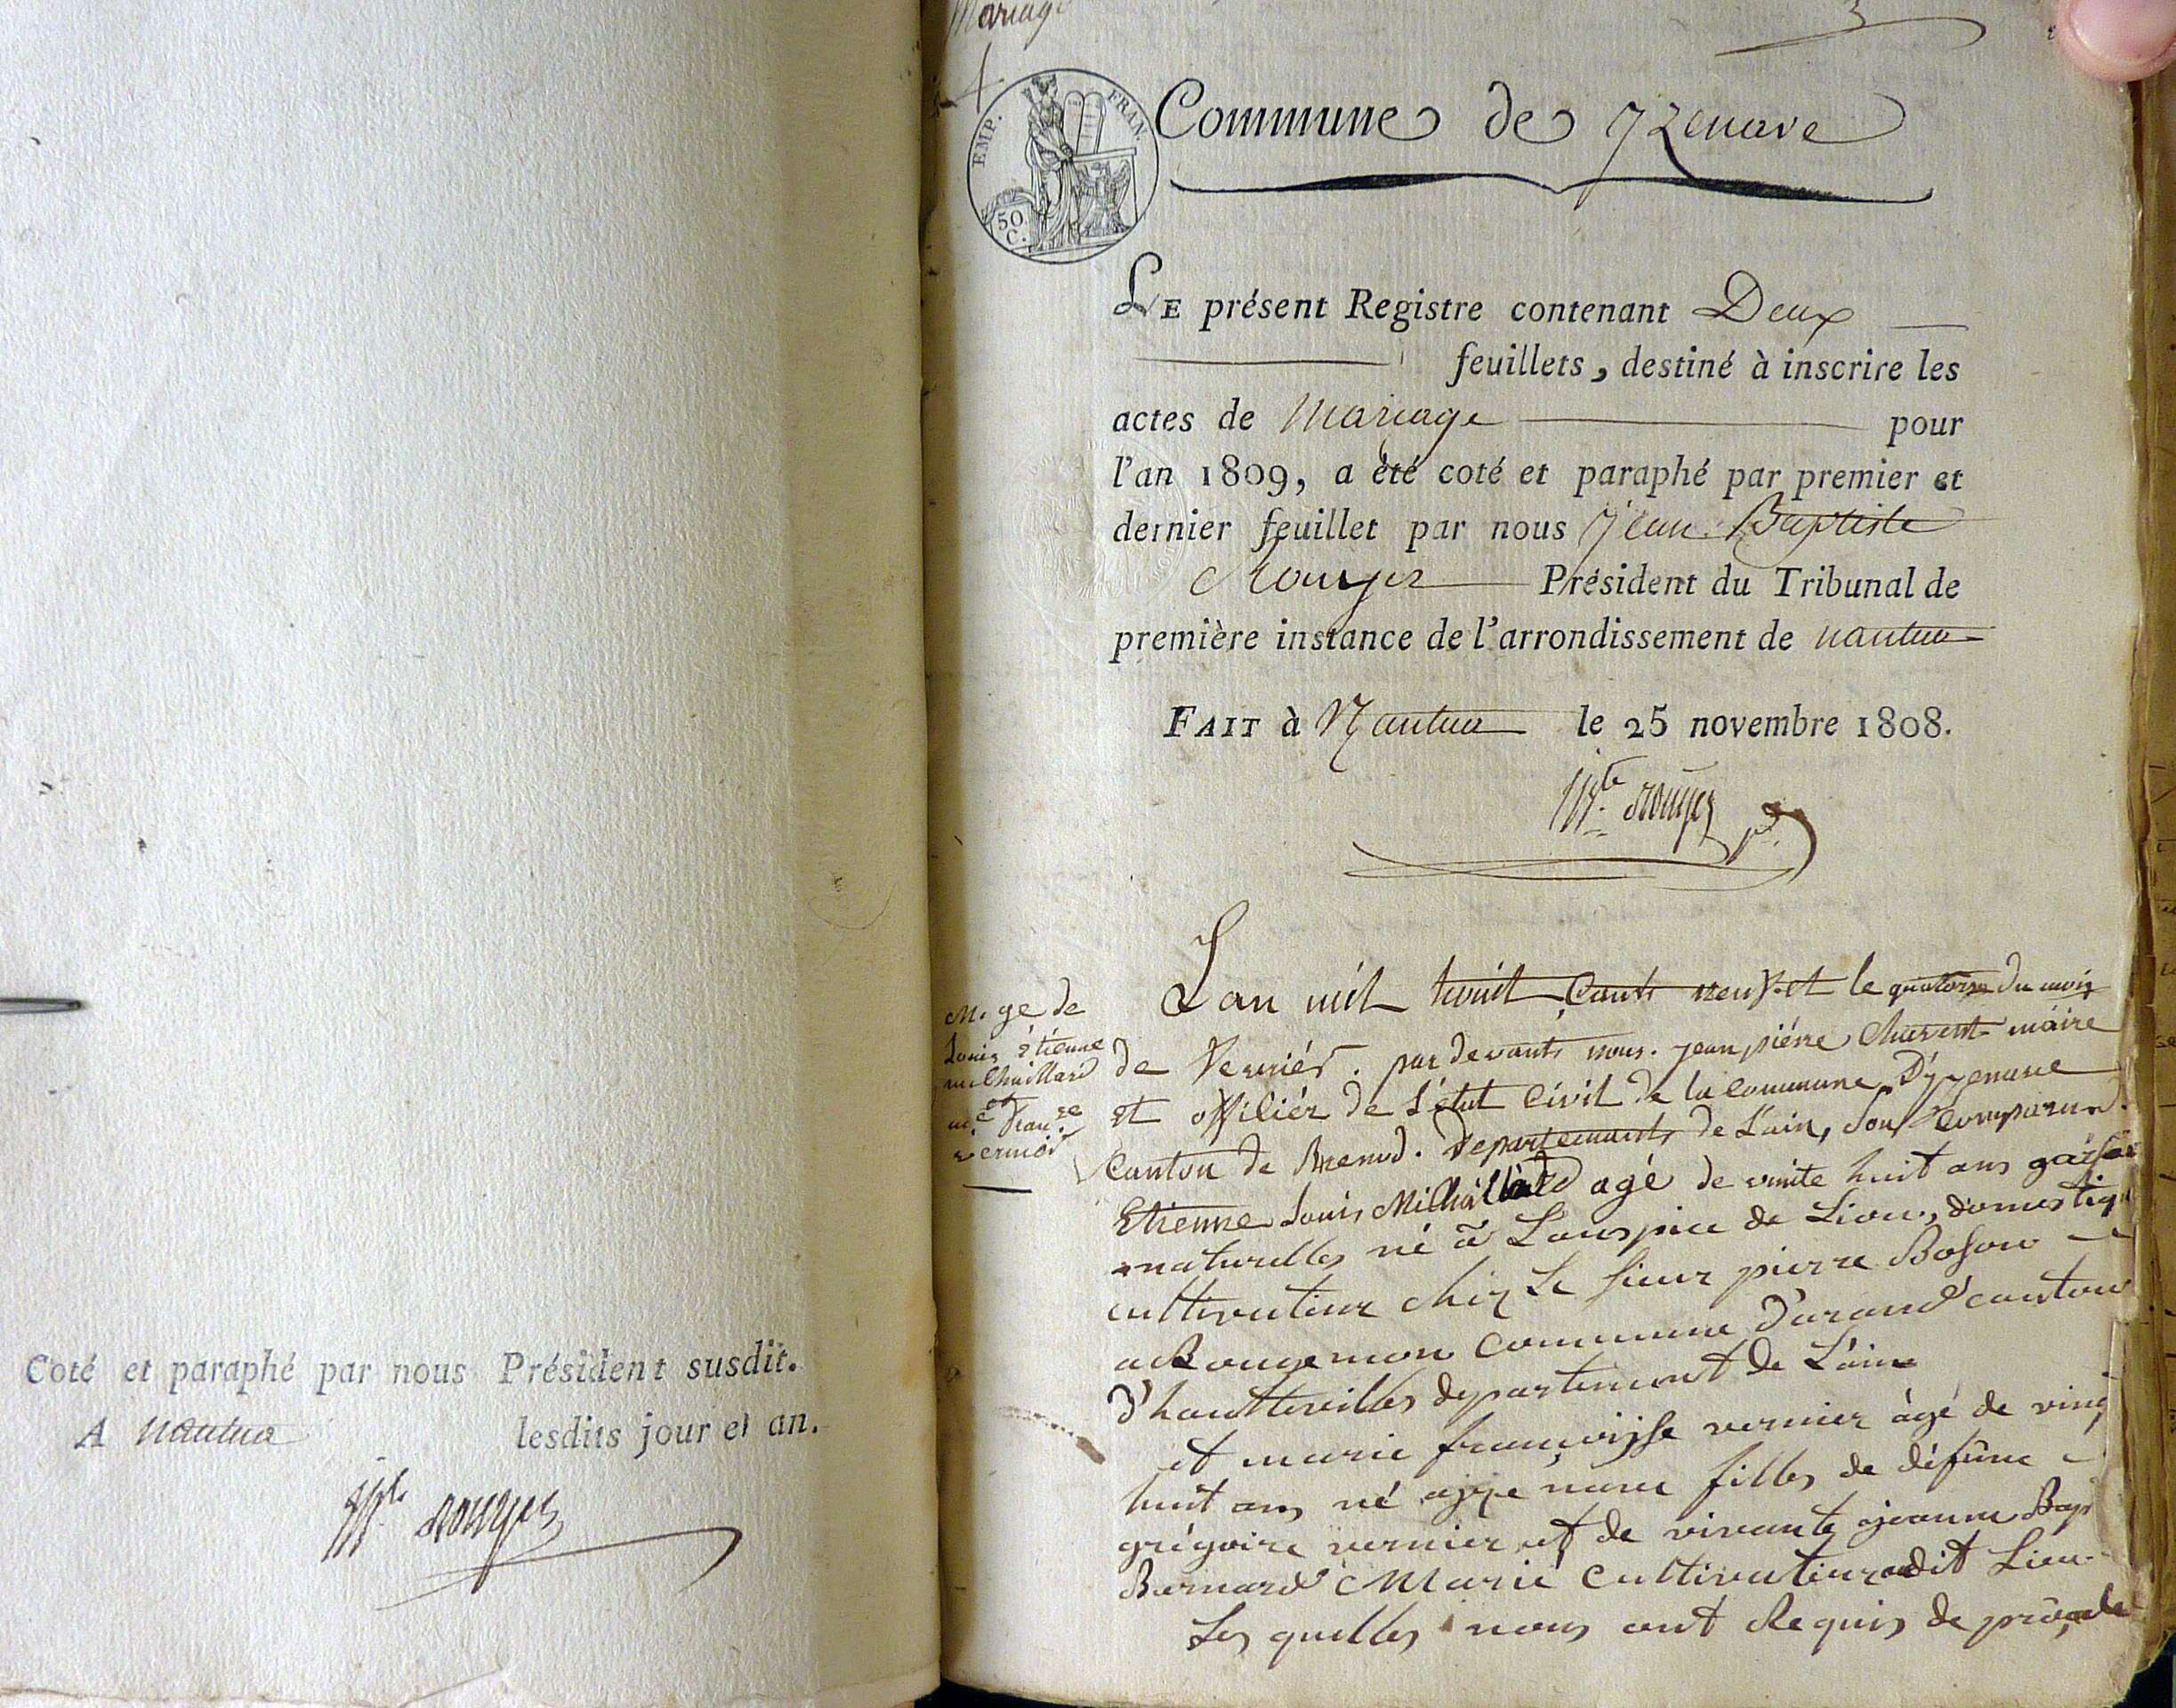 Coté et paraphé par nous Président susdit.
A nantua lesdits jour et an.
rouyer
Mariage
3
EMP. FRAN.
50
C.
Commune de yzenave
LE présent Registre contenant Deux
feuillets, destiné à inscrire les
actes de Mariage pour
l'an 1809, a été coté et paraphé par premier et
dernier feuillet par nous Jean Baptiste
Rouyer Président du Tribunal de
première instance de l'arrondissement de nantua
FAIT à Nantua le 25 novembre 1808.
rouyer
M.ge de
Louis étienne
michaillard
et
m.e fran.se
vernier
Lan mil huit cents neuf et le quatorze du mois
de fevriér. par devants nous. jean piérre Charvet maire
et offiliér de l'état Civil de la Commune D'yzenave
Canton de Brenod. Departements de L'ain, Sont Comparue.
Etienne Louis Michaillard agé de vinte huit ans garson
naturelles né a L'auspice de Lion, domestiqu
cultivateur chez Le sieur pierre Boson
a Rougemon Commune D'arand canton
D'hauttevilles departement de L'ain
et marie françoijse vernier àgé de ving
huit ans né ayzenave filles de défunc
grégoire vernier et de vivante jeanne Bap
Bernard Marié Cultivateur audit Lieu
Les quelles nous ont Requis de procede